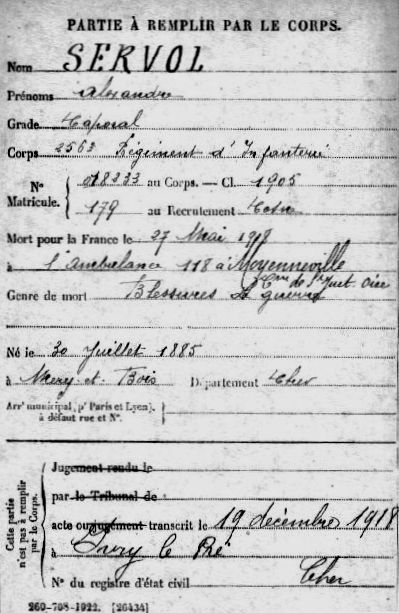 PARTIE À REMPLIR PAR LE CORPS.
Nom SERVOL
Prénoms Alexandre
Grade Caporal
Corps 256e Régiment d'Infanterie
N° Matricule. { 018233 au Corps. — Cl. 1905
179 au Recrutement Cosne
Mort pour la France le 27 Mai 1918
à l'ambulance 118 à Moyenneville
Cne de St Just Oise
Genre de mort Blessures de guerre
Né le 30 Juillet 1885
à Mery-et-Bois Département Cher
Arrt municipal (pr Paris et Lyon), à défaut rue et N°. }
Cette partie n'est pas à remplir par le Corps.
Jugement rendu le
par le Tribunal de
acte ou jugement transcrit le 19 décembre 1918
à Ivry le Pré
Cher
N° du registre d'état civil
260-708-1922. [26434]